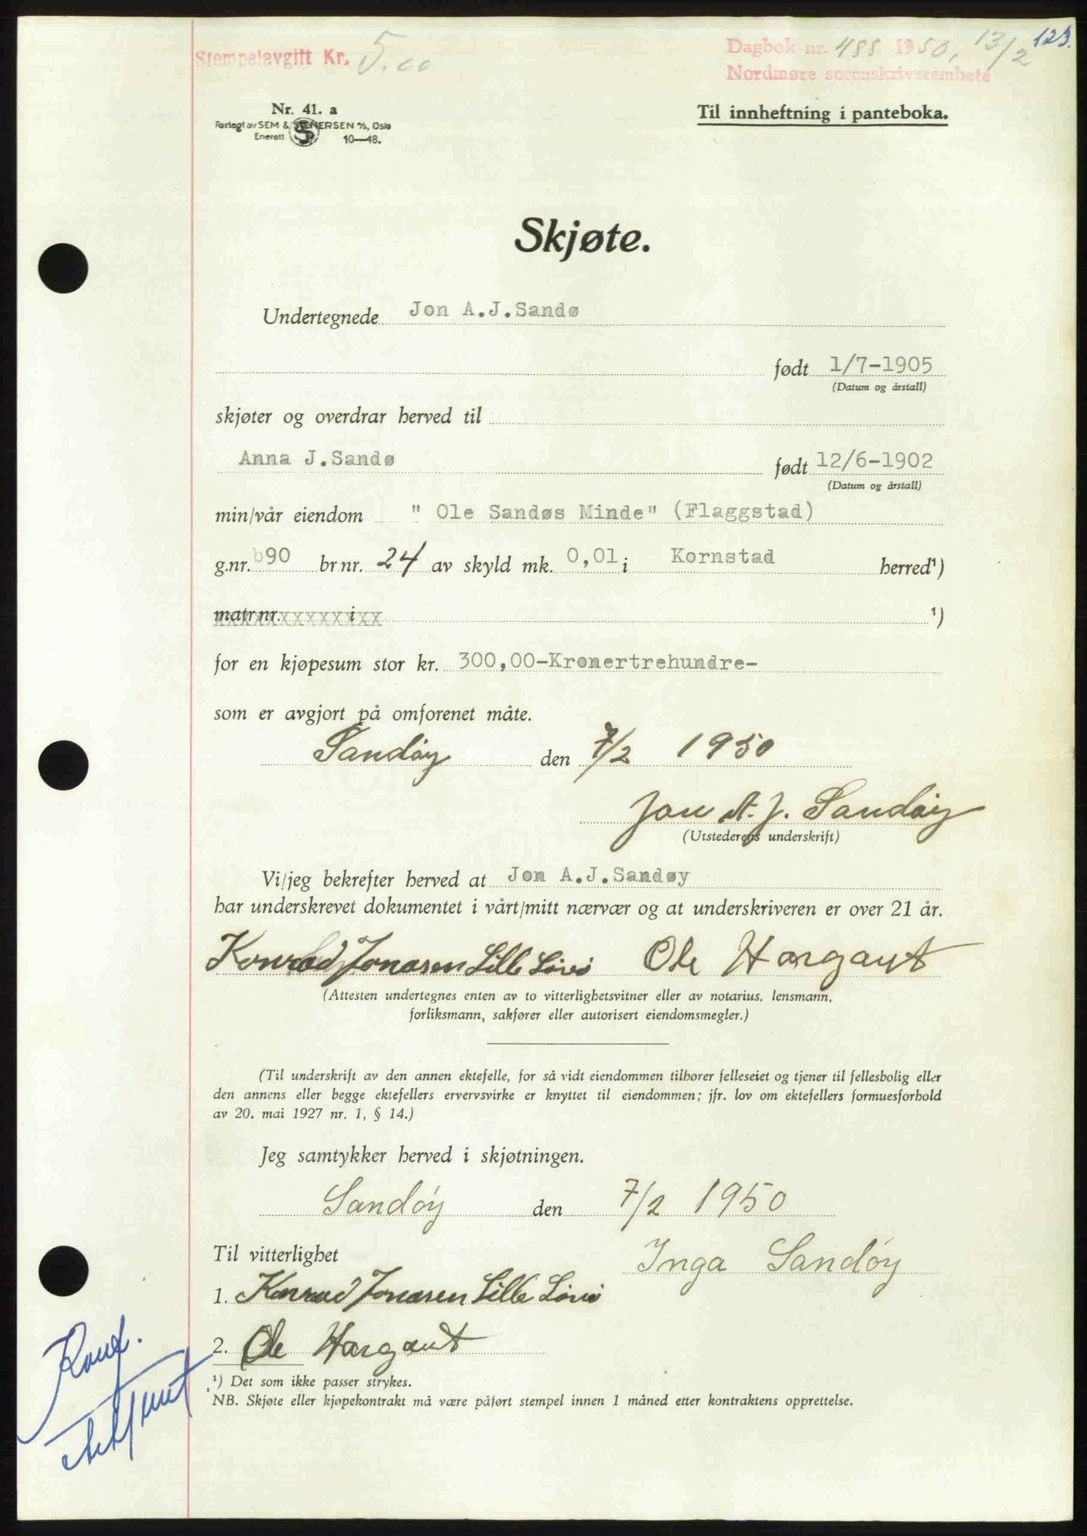 Stempelavgift Kr. 5.00
Dagbok nr. 488 1950, 13/2 123.
Nordmøre sorenskriverembete
Nr. 41. a
Forlagt av SEM & STENERSEN A/S, Oslo
Enerett 10—48.
Til innheftning i panteboka.
Skjøte.
Undertegnede Jon A.J.Sandø
født 1/7-1905
(Datum og årstall)
skjøter og overdrar herved til
Anna J.Sandø født 12/6-1902
(Datum og årstall)
min/vår eiendom " Ole Sandøs Minde" (Flaggstad)
g.nr. b90 br.nr. 24 av skyld mk. 0,01 i Kornstad herred¹)
matr.nr. i ¹)
for en kjøpesum stor kr. 300,00-Kronertrehundre-
som er avgjort på omforenet måte.
Sandöy den 7/2 1950
Jon A. J. Sandöy
(Utstederens underskrift)
Vi/jeg bekrefter herved at Jon A.J.Sandøy
har underskrevet dokumentet i vårt/mitt nærvær og at underskriveren er over 21 år.
Konrad Jonasen Lille Ole Hargaut
(Attesten undertegnes enten av to vitterlighetsvitner eller av notarius, lensmann,
forliksmann, sakfører eller autorisert eiendomsmegler.)
(Til underskrift av den annen ektefelle, for så vidt eiendommen tilhører felleseiet og tjener til fellesbolig eller
den annens eller begge ektefellers ervervsvirke er knyttet til eiendommen; jfr. lov om ektefellers formuesforhold
av 20. mai 1927 nr. 1, § 14.)
Jeg samtykker herved i skjøtningen.
Sandöy den 7/2 1950
Til vitterlighet Inga Sandöy
1. Konrad Jonasen Lille
2. Ole Hargaut
¹) Det som ikke passer strykes.
NB. Skjøte eller kjøpekontrakt må være påført stempel innen 1 måned etter kontraktens opprettelse.
Konf.